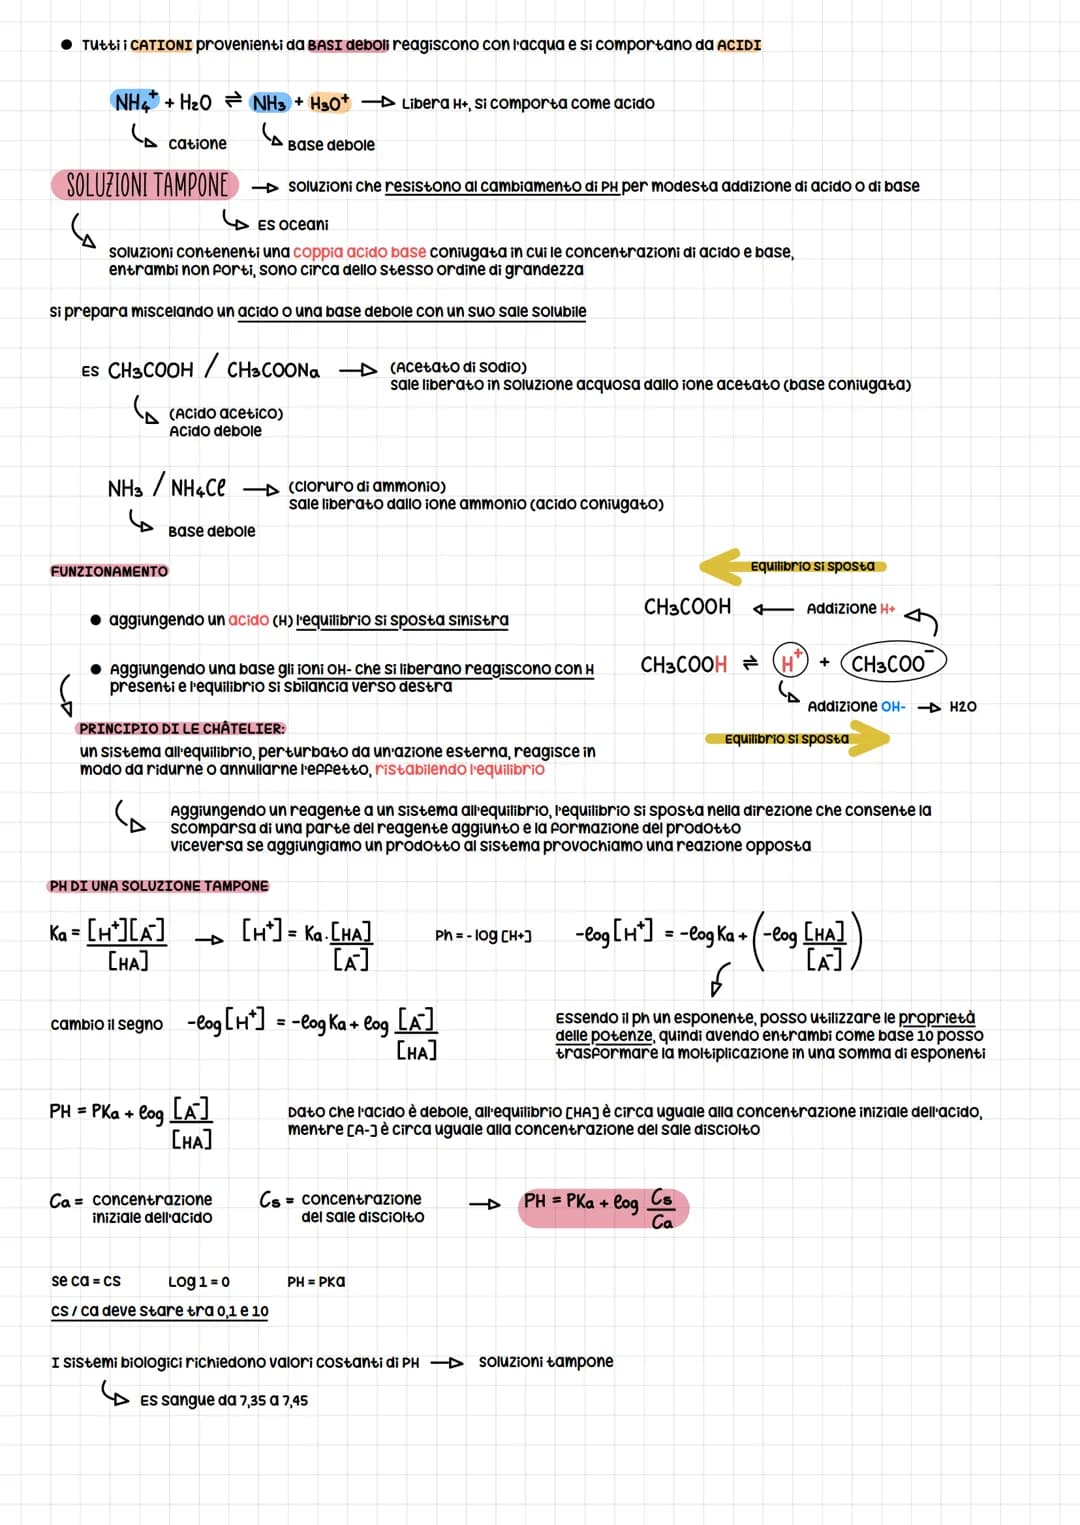 • Tutti i CATIONI provenienti da BASI deboli reagiscono con l'acqua e si comportano da ACIDI
NH₄⁺ + H₂O ⇌ NH₃ + H₃O⁺ → Libera H+, si comporta come acido
catione
Base debole
SOLUZIONI TAMPONE → soluzioni che resistono al cambiamento di PH per modesta addizione di acido o di base
ES oceani
soluzioni contenenti una coppia acido base coniugata in cui le concentrazioni di acido e base,
entrambi non forti, sono circa dello stesso ordine di grandezza
si prepara miscelando un acido o una base debole con un suo sale solubile
ES CH₃COOH / CH₃COONa → (Acetato di sodio)
sale liberato in soluzione acquosa dallo ione acetato (base coniugata)
(Acido acetico)
Acido debole
NH₃ / NH₄Cl → (cloruro di ammonio)
sale liberato dallo ione ammonio (acido coniugato)
Base debole
FUNZIONAMENTO
• aggiungendo un acido (H) l'equilibrio si sposta sinistra
• Aggiungendo una base gli ioni OH- che si liberano reagiscono con H
presenti e l'equilibrio si sbilancia verso destra
Equilibrio si sposta
CH₃COOH ← Addizione H+
CH₃COOH ⇌ H⁺ + CH₃COO⁻
Addizione OH- → H2O
Equilibrio si sposta
PRINCIPIO DI LE CHÂTELIER:
un sistema all'equilibrio, perturbato da un'azione esterna, reagisce in
modo da ridurne o annullarne l'effetto, ristabilendo l'equilibrio
Aggiungendo un reagente a un sistema all'equilibrio, l'equilibrio si sposta nella direzione che consente la
scomparsa di una parte del reagente aggiunto e la formazione del prodotto
viceversa se aggiungiamo un prodotto al sistema provochiamo una reazione opposta
PH DI UNA SOLUZIONE TAMPONE
Ka = [H⁺][A⁻] / [HA] → [H⁺] = Ka · [HA] / [A⁻] Ph = - log [H+] -log [H⁺] = -log Ka + (-log [HA] / [A⁻])
cambio il segno -log [H⁺] = -log Ka + log [A⁻] / [HA]
Essendo il ph un esponente, posso utilizzare le proprietà
delle potenze, quindi avendo entrambi come base 10 posso
trasformare la moltiplicazione in una somma di esponenti
PH = PKa + log [A⁻] / [HA]
Dato che l'acido è debole, all'equilibrio [HA] è circa uguale alla concentrazione iniziale dell'acido,
mentre [A-] è circa uguale alla concentrazione del sale disciolto
Ca = concentrazione
iniziale dell'acido
Cs = concentrazione
del sale disciolto
→ PH = PKa + log Cs / Ca
se ca = cs Log 1 = 0 PH = PKa
cs / ca deve stare tra 0,1 e 10
I sistemi biologici richiedono valori costanti di PH → soluzioni tampone
ES sangue da 7,35 a 7,45